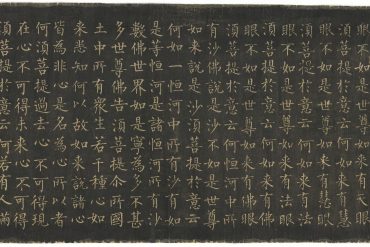 眼不如是世尊如來有天眼
須菩提於意云何如來有慧
眼不如是世尊如來有慧眼
須菩提於意云何如來有法
眼不如是世尊如來有法眼
須菩提於意云何如來有佛
眼不如是世尊如來有佛眼
須菩提於意云何恒河中所
有沙佛說是沙不如是世尊
如來說是沙須菩提於意云
何如一恒河中所有沙有如
是等恒河是諸恒河所有沙
數佛世界如是寧為多不甚
多世尊佛告須菩提尒所國
土中所有眾生若干種心如
來悉知何以故如來說諸心
皆為非心是名為心所以者
何須菩提過去心不可得現
在心不可得未來心不可得
須菩提於意云何若有人滿